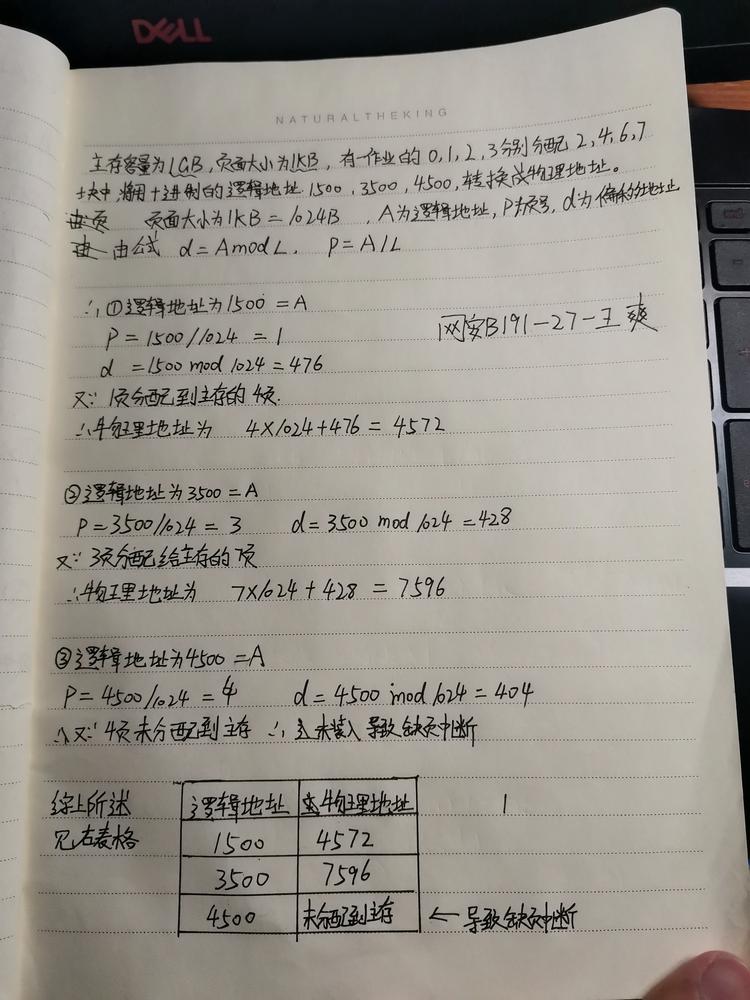 DELL
NATURALTHEKING
主存容量为1GB,页面大小为1KB,有一作业的0,1,2,3分别分配2,4,6,7
块中.将用十进制的逻辑地址.1500,3500,4500,转换成物理地址。
页面大小为1KB=1024B,A为逻辑地址,P为页号,d为偏移的地址
由公式 d=AmodL, P=A/L
∴①逻辑地址为1500=A
P=1500/1024=1
网安B191-27-王爽
d=1500 mod 1024=476
又∵1页分配到主存的4页.
∴物理地址为 4×1024+476=4572
②逻辑地址为3500=A
P=3500/1024=3 d=3500 mod 1024=428
又∵3页分配给主存的7页
∴物理地址为 7×1024+428=7596
③逻辑地址为4500=A
P=4500/1024=4 d=4500 mod 1024=404
又∵4页未分配到主存 ∴未装入导致缺页中断
综上所述 逻辑地址 物理地址
见右表格 1500 4572
3500 7596
4500 未分配到主存 ←导致缺页中断